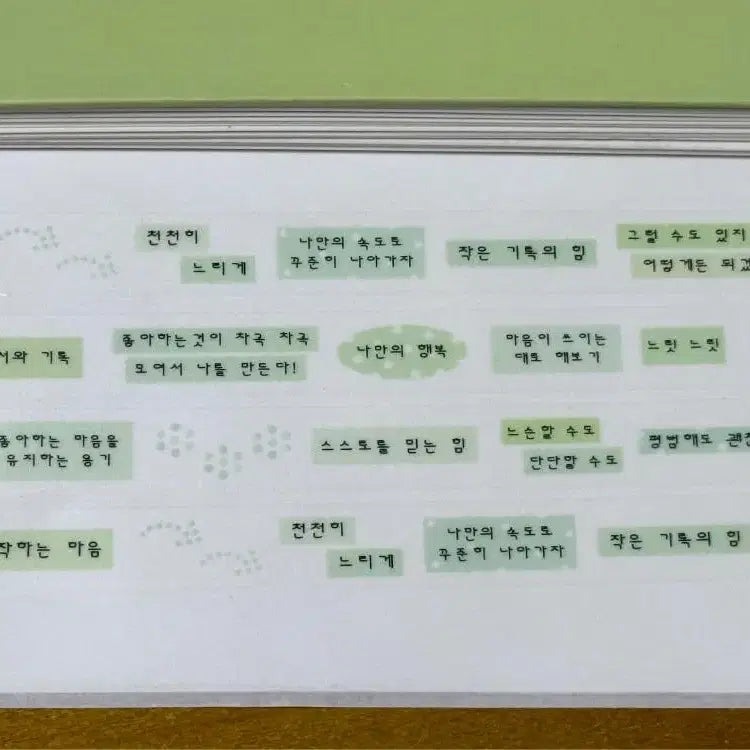 천천히
느리게
나만의 속도로
꾸준히 나아가자
작은 기록의 힘
그럴 수도 있지
어떻게든 되겠
기록
좋아하는것이 차곡 차곡
모여서 나를 만든다!
나만의 행복
마음이 쓰이는
대로 해보기
느릿 느릿
좋아하는 마음을
유지하는 용기
스스로를 믿는 힘
느슨할 수도
단단할 수도
평범해도 괜찮
작하는 마음
천천히
느리게
나만의 속도로
꾸준히 나아가자
작은 기록의 힘